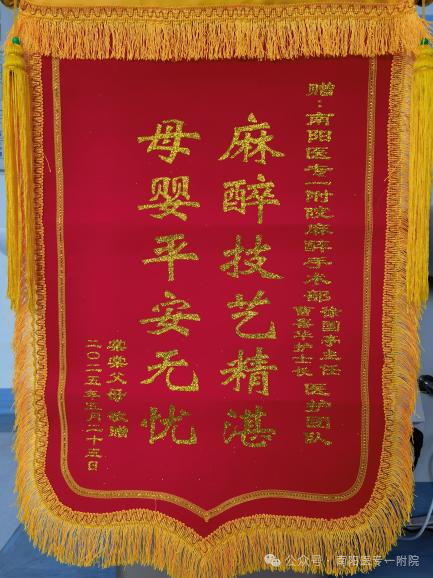 赠：南阳医专一附院麻醉手术部
徐国亭主任
曹喜华护士长
医护团队
麻醉技艺精湛
母婴平安无忧
棠棠父母敬赠
二〇二五年五月二十五日
公众号·南阳医专一附院